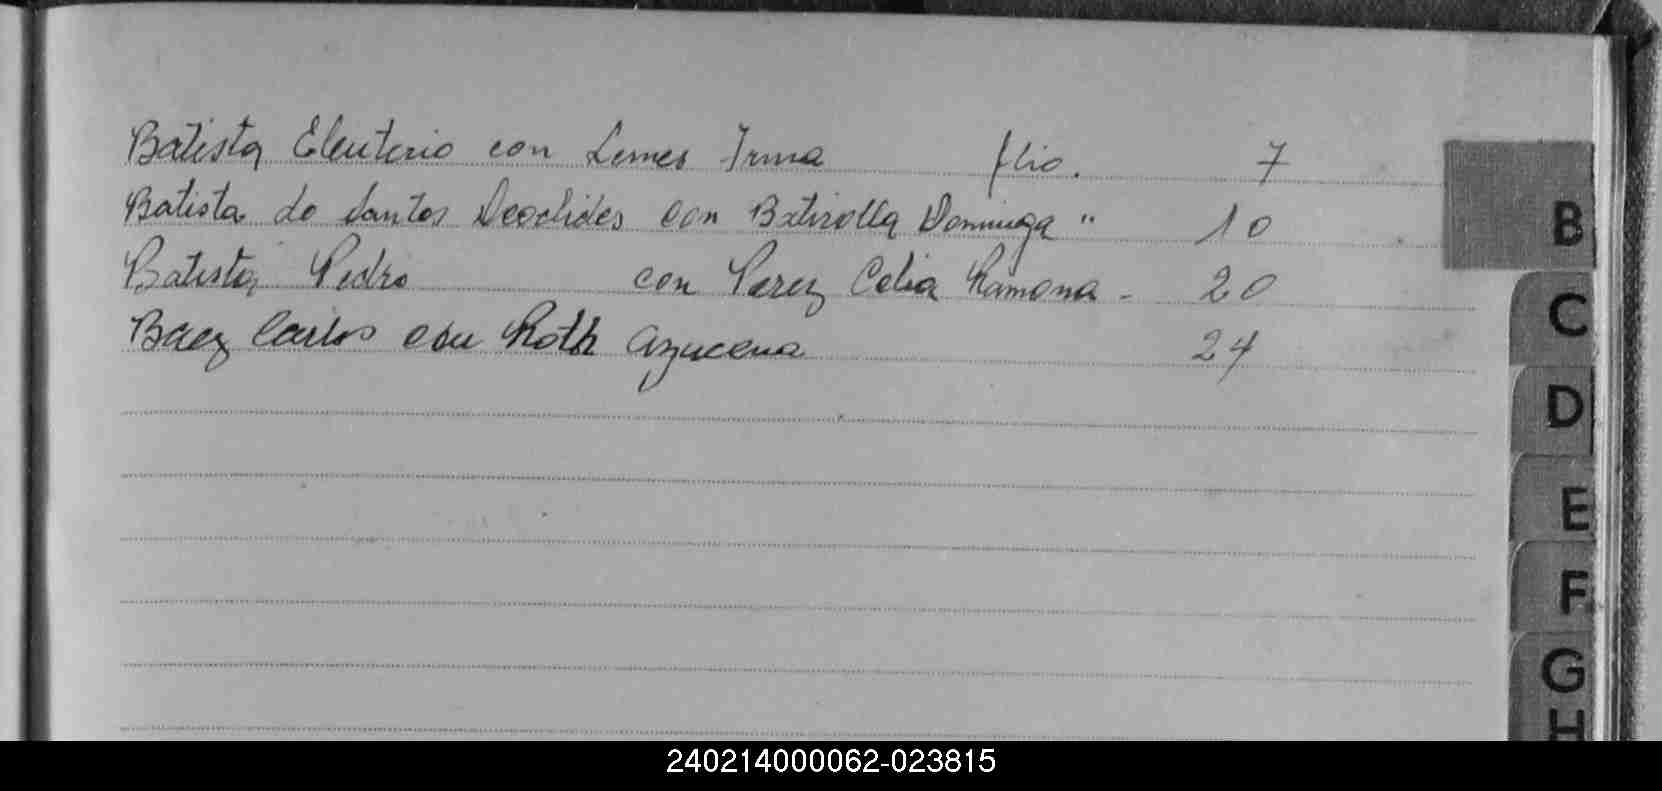 Batista Eleuterio con Lemes Irma flio. 7
Batista do Santos Deoclides con Batirolla Dominga " 10
Batista Pedro con Perez Celia Ramona - 20
Baez Carlos con Roth Azucena 24
B
C
D
E
F
G
H
240214000062-023815